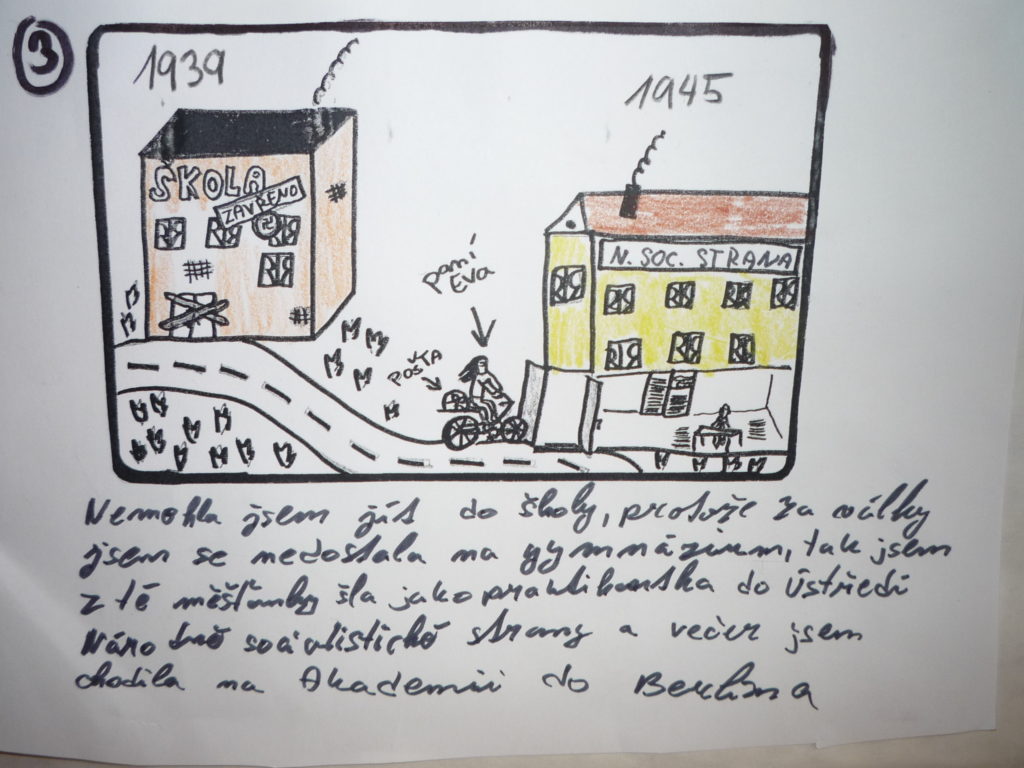 3
1939
1945
ŠKOLA
ZAVŘENO
N. SOC. STRANA
paní
EVA
POŠTA
Nemohla jsem jít do školy, protože za války
jsem se nedostala na gymnázium, tak jsem
z té měšťanky šla jako praktikantka do Ústředí
Národně socialistické strany a večer jsem
chodila na Akademii do Berlina